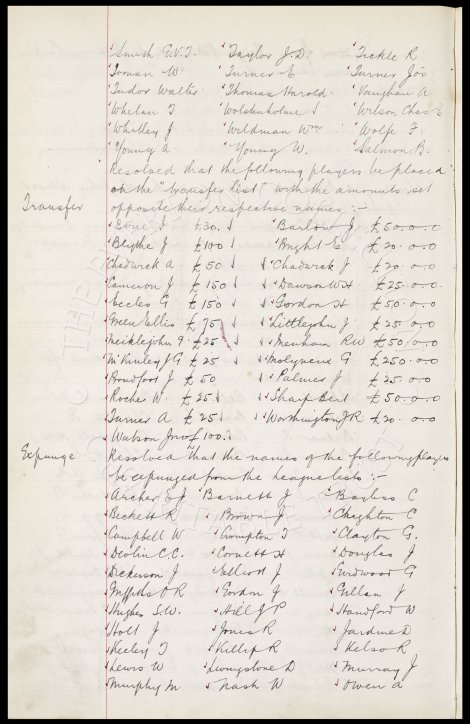 Smith E.V.T. Taylor J.D. Teckle R
Toman W. Turner E Turner Jos
Tudor Walter Thomas Harold. Vaughan A
Whelan T Wolstenholme S Wilson Chas E
Whitley J Wildman Wm Wolfe F.
Young A Young W. Salmon B.
Resolved that the following players be placed
on the "transfer list" with the amounts set
Transfer opposite their respective names :-
£30. Barlow J £50.0.0
Blythe J £100 Bright E £20.0.0
Chadwick A £50 Chadwick J £20.0.0
Cameron J £150 Dawson W H £25.0.0
Eccles G £150 Gordon H £50.0.0
Green Ellis £75 Littlejohn J £25.0.0
Meiklejohn G £25 Meenham RW £50.0.0
McKinley J G £25 Molyneux G £250.0.0
Proudfoot J £50 Palmer J £25.0.0
Roche W £25 Sharp Bert £50.0.0
Turner A £25 Wormington J R £20.0.0
Watson £100.
Expunge Resolved that the names of the following players
be expunged from the League lists :-
Archer E J Barnett J Bayliss C
Beckett R Brown J Chaghton C
Campbell W Crompton T Clayton G.
Devlin C.C. Cornett H Douglas J
Dickenson J Elliott J Eurdwood G
Griffiths O R Gordon J Gillan J
Hughes S.W. Hill J P Handford W
Holt J Jones R Jardine D
Keeley T Killip R Kelso R
Lewis W Livingstone D Murray J
Murphy M Nash W Owen A